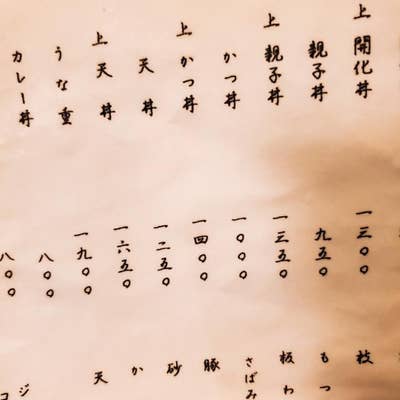 上開化丼
親子丼
上親子丼
かつ丼
上かつ丼
天丼
上天丼
うな重
カレー丼
一三〇〇
九五〇
一三五〇
一〇〇〇
一四〇〇
一二五〇
一六五〇
一九〇〇
八〇〇
八〇〇
枝
もつ
板わ
さばみ
豚
砂
か
天
ジ
コ